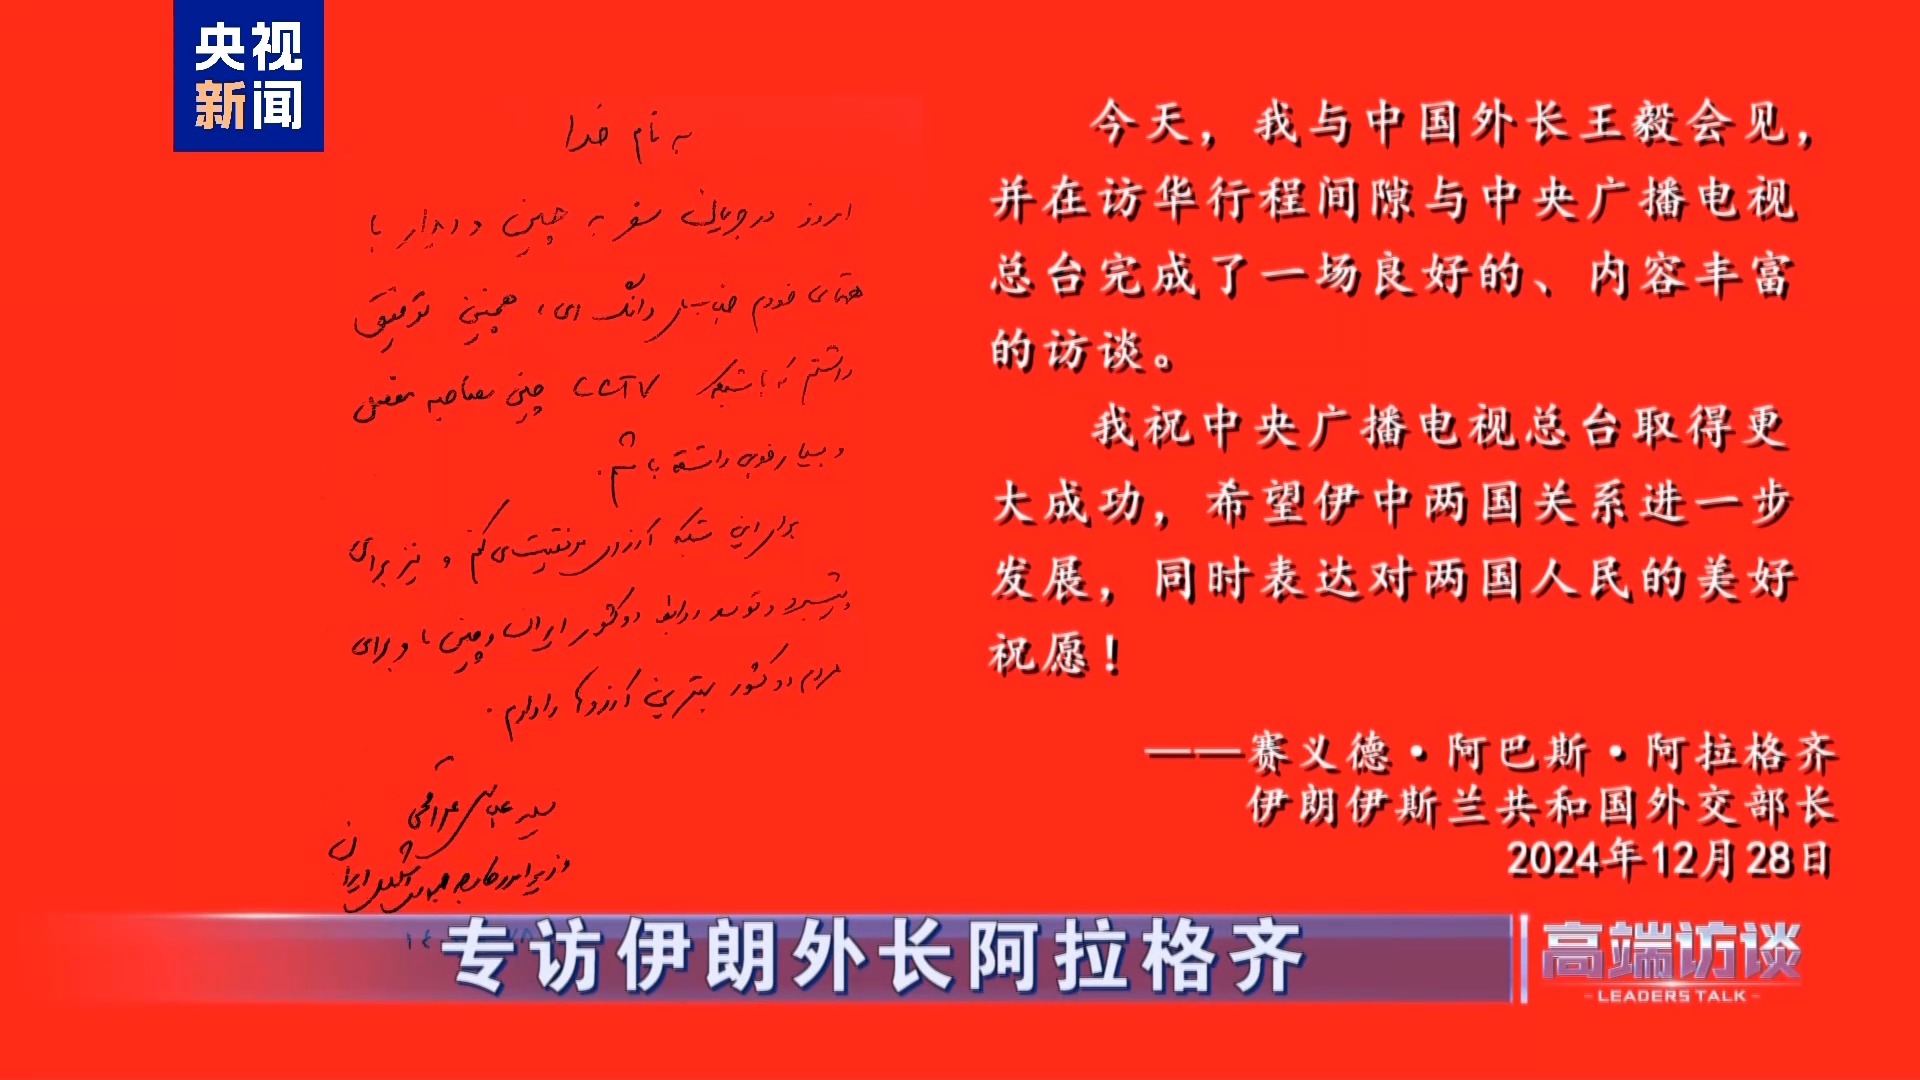 央视
新闻
به نام خدا
امروز در جریان سفر به چین و دیدار با
همتای خودم جناب آقای وانگ ای، همچنین توفیق
داشتم که با شبکه CCTV چین مصاحبه مفصل
و بسیار خوبی داشته باشم.
برای این شبکه آرزوی موفقیت می کنم و نیز برای
پیشبرد و توسعه روابط دو کشور ایران و چین و برای
مردم دو کشور بهترین آرزوها را دارم.
سید عباس عراقچی
وزیر امور خارجه جمهوری اسلامی ایران
今天，我与中国外长王毅会见，
并在访华行程间隙与中央广播电视
总台完成了一场良好的、内容丰富
的访谈。
我祝中央广播电视总台取得更
大成功，希望伊中两国关系进一步
发展，同时表达对两国人民的美好
祝愿！
——赛义德·阿巴斯·阿拉格齐
伊朗伊斯兰共和国外交部长
2024年12月28日
专访伊朗外长阿拉格齐
高端访谈
-LEADERS TALK-